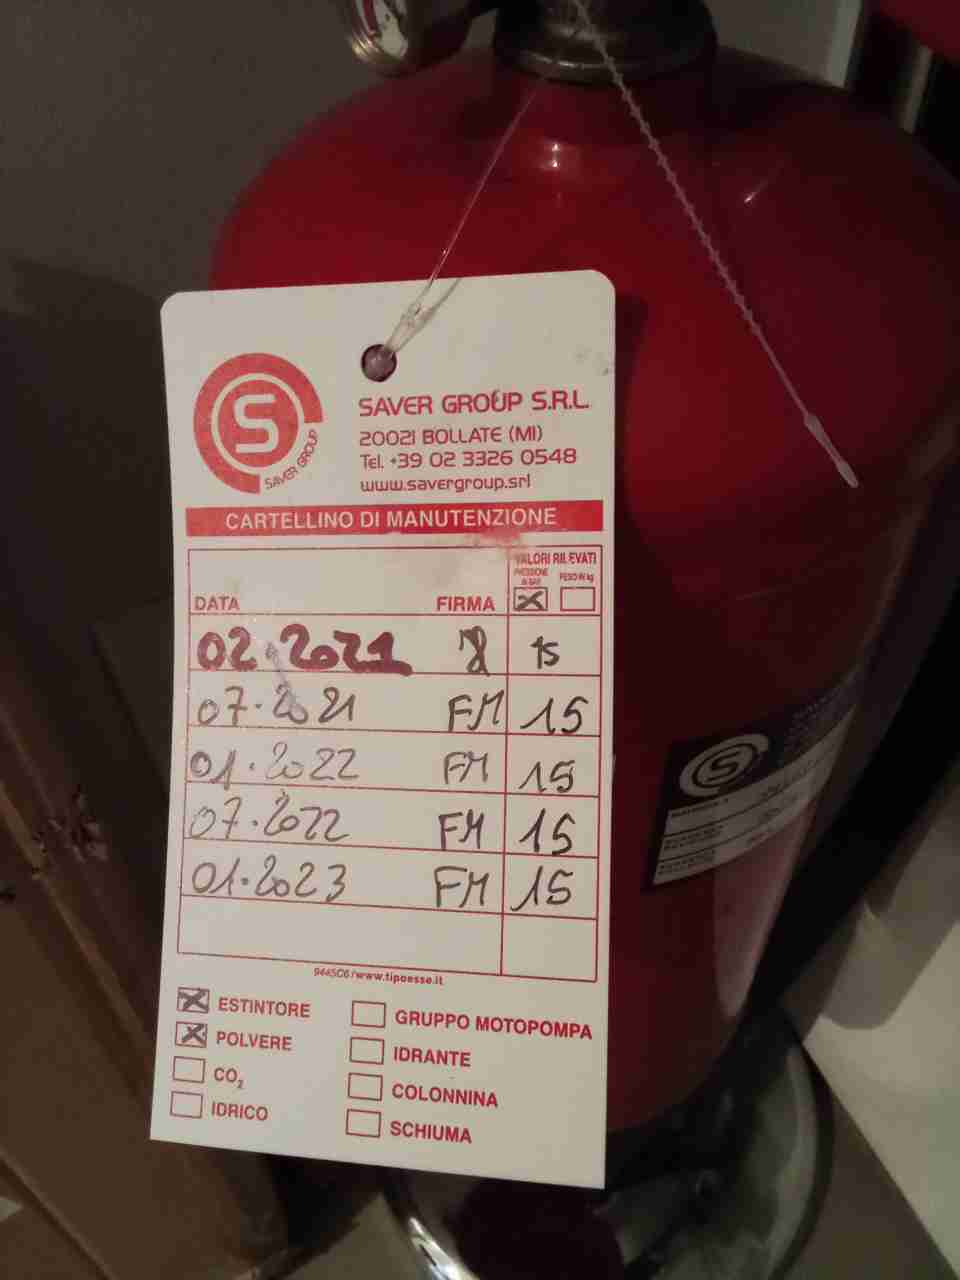 SAVER GROUP
SAVER GROUP S.R.L.
20021 BOLLATE (MI)
Tel. +39 02 3326 0548
www.savergroup.srl
CARTELLINO DI MANUTENZIONE
VALORI RILEVATI
PRESSIONE IN BAR PESO IN kg
DATA FIRMA
02.2021 15
07.2021 FM 15
01.2022 FM 15
07.2022 FM 15
01.2023 FM 15
9445C6/www.tipoesse.it
ESTINTORE
POLVERE
CO2
IDRICO
GRUPPO MOTOPOMPA
IDRANTE
COLONNINA
SCHIUMA